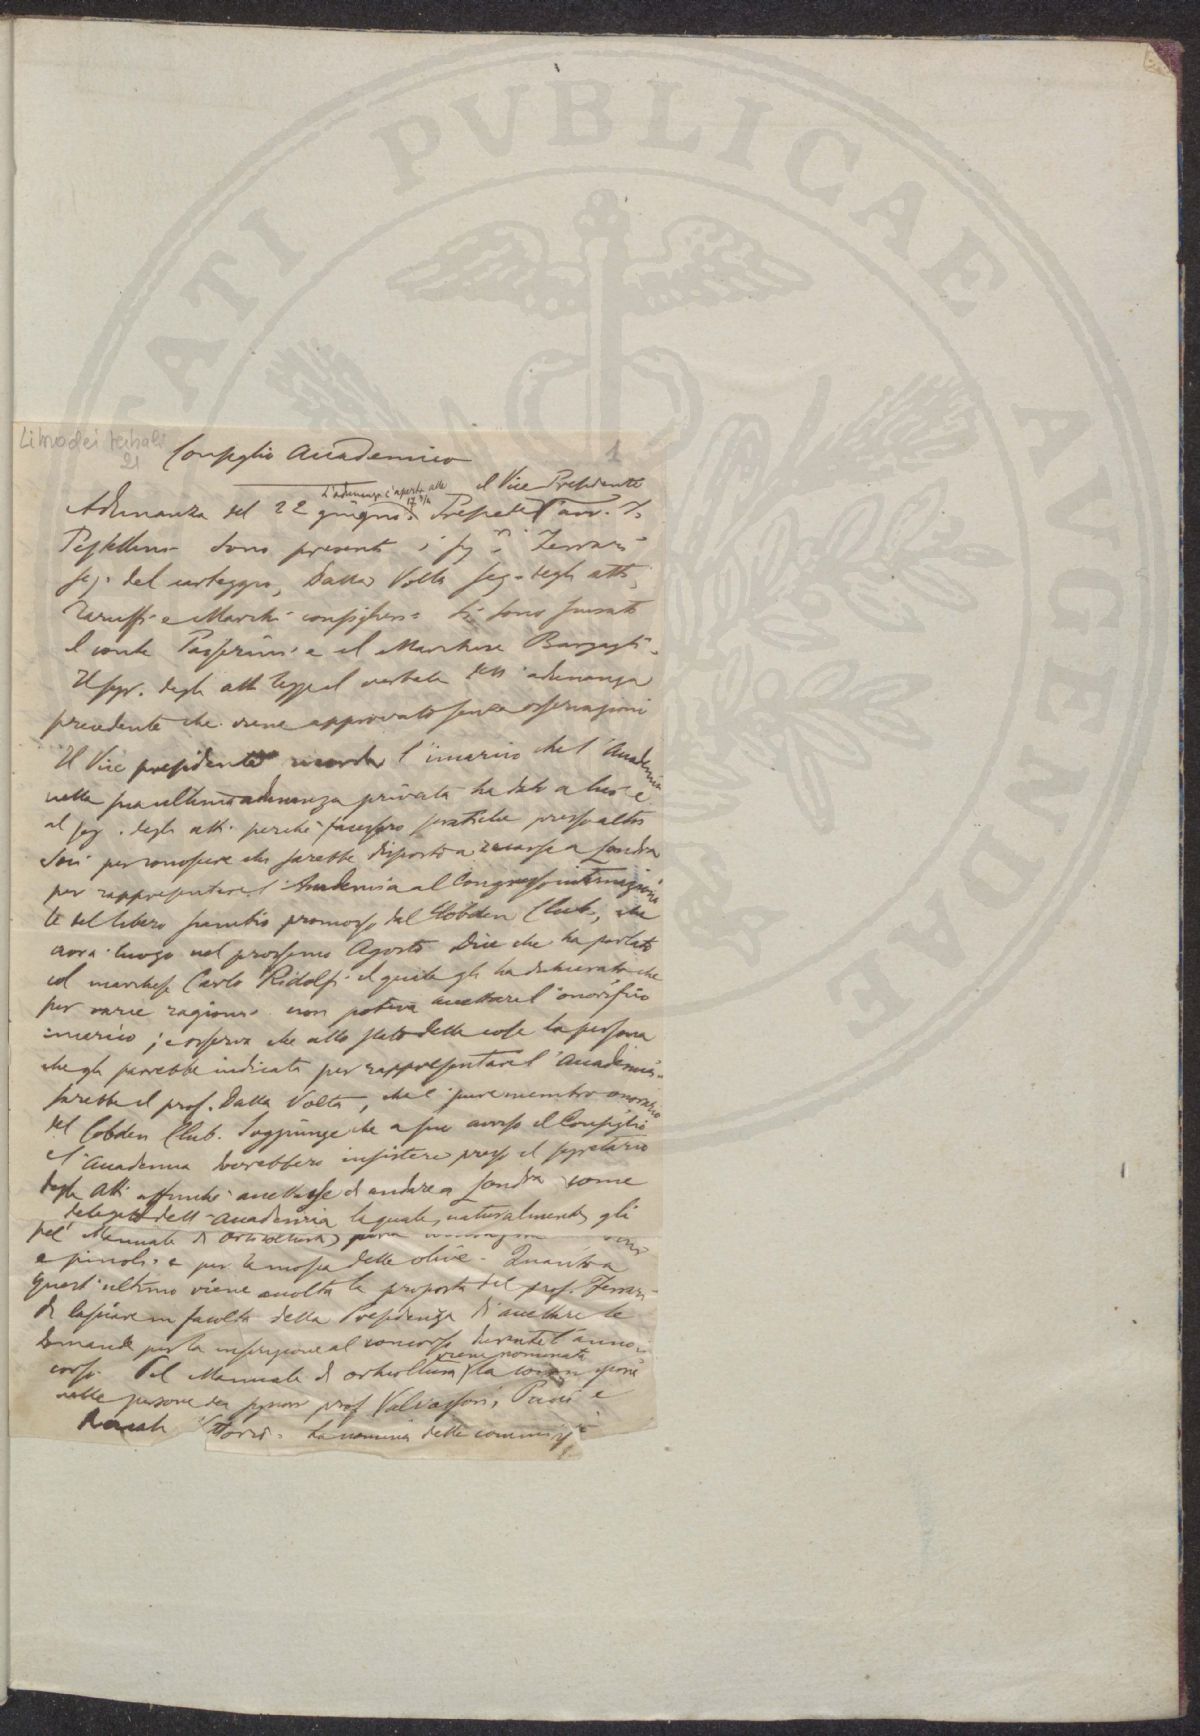 PROSPERITATI PVBLICAE AVGENDAE
Libro dei verbali
21
1
Consiglio Accademico
L'adunanza è aperta alle 17 3/4
il Vice Presidente
Adunanza del 22 giugno. Presiede l'avv. T.
Pestellini. Sono presenti i sigri Ferrari
seg. del carteggio, Dalla Volta seg. degli atti,
Taruffi e Marchi consiglieri. Si sono scusati
il conte Passerini e il Marchese Bargagli.
Il segr. degli atti legge il verbale dell'adunanza
precedente che viene approvato senza osservazioni
Il Vice presidente ricorda l'incarico che l'Accademia
nella sua ultima adunanza privata ha dato a lui e
al seg. degli atti perchè facessero pratiche presso altri
Soci per conoscere chi sarebbe disposto a recarsi a Londra
per rappresentare l'Accademia al Congresso internaziona
le del libero scambio promosso dal Cobden Club, che
avrà luogo nel prossimo Agosto. Dice che ha parlato
col marchese Carlo Ridolfi il quale gli ha dichiarato che
per varie ragioni non poteva accettare l'onorifico
incarico; e osserva che allo stato delle cose la persona
che gli parrebbe indicata per rappresentare l'Accademia
sarebbe il prof. Dalla Volta, che è pure membro onorario
del Cobden Club. Soggiunge che a suo avviso il Consiglio
e l'Accademia dovrebbero insistere presso il segretario
degli Atti affinchè accettasse di andare a Londra come
delegato dell'Accademia la quale, naturalmente, gli
pel Manuale di orticoltura,
e pinoli e per la mosca delle olive. Quanto a
quest'ultimo viene accolta la proposta del prof. Ferrari
di lasciare in facoltà della Presidenza di accettare le
domande per la inscrizione al concorso durante l'anno in
corso. Pel Manuale di orticoltura viene nominata la commissione
nelle persone dei signori prof Valvassori, Pucci e
Ronch Storzi. La nomina della commissi